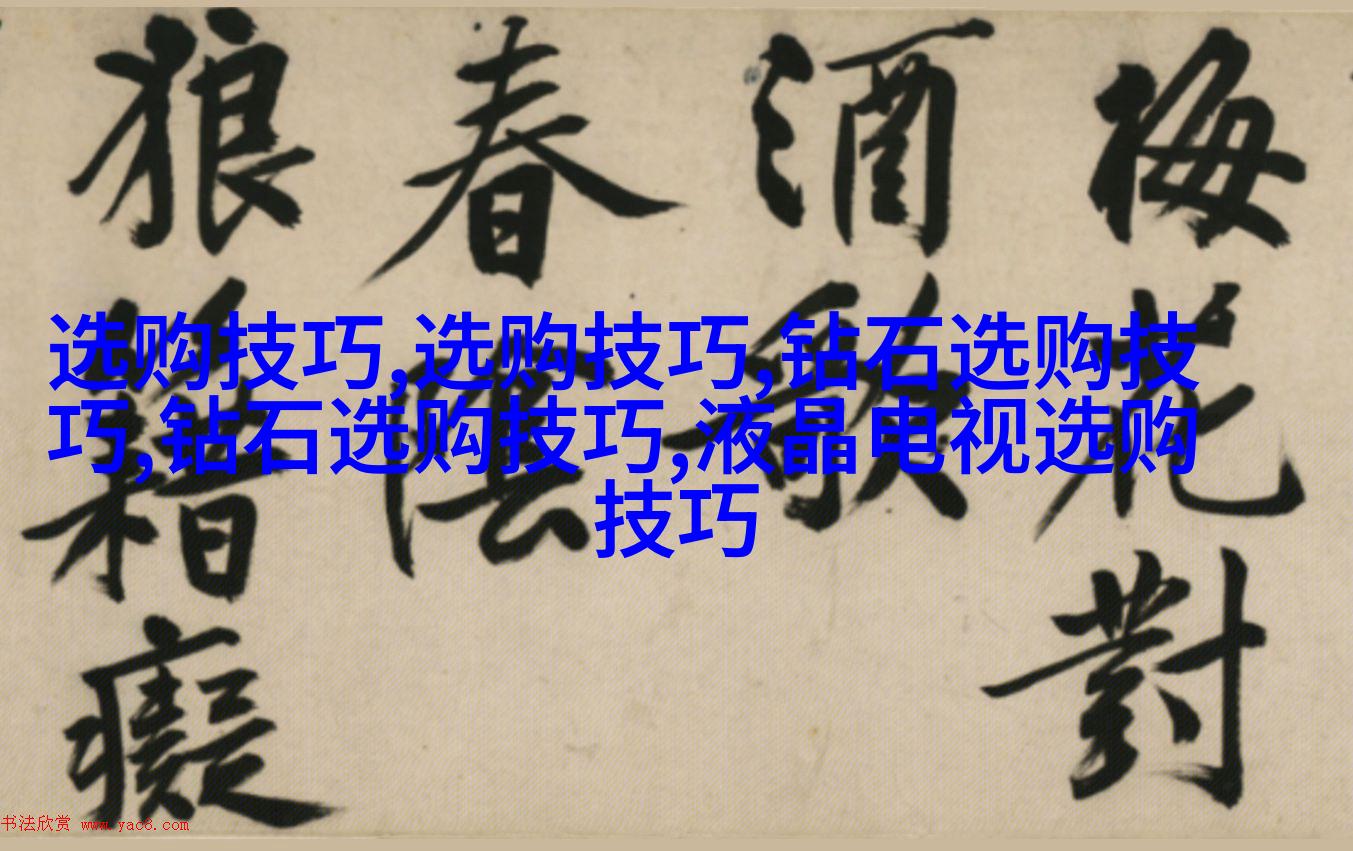 梅花對
酒歌
春陰
狼籍癡
选购技巧,选购技巧,钻石选购技
巧,钻石选购技巧,液晶电视选购
技巧
书法欣赏 www.yac8.com